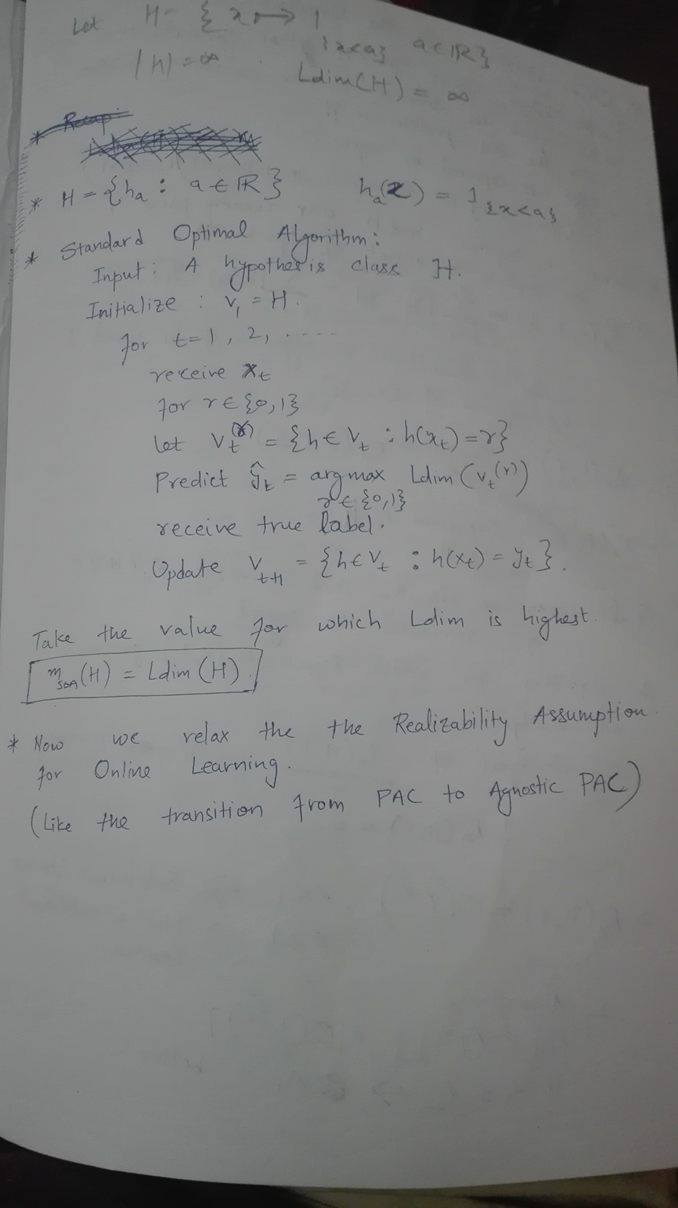 Let H = { x ↦ 1_{x<a} a ∈ ℝ}
|H| = ∞ Ldim(H) = ∞
* Recap
* H = {h_a : a ∈ ℝ} h_a(x) = 1_{x<a}
* Standard Optimal Algorithm:
Input: A hypothesis class H.
Initialize : V_1 = H.
for t=1, 2, .....
receive x_t
for r ∈ {0,1}
Let V_t^(r) = {h ∈ V_t : h(x_t) = r}
Predict ŷ_t = argmax Ldim (V_t^(r))
r ∈ {0,1}
receive true label.
Update V_{t+1} = {h ∈ V_t : h(x_t) = y_t}.
Take the value for which Ldim is highest.
m_SOA(H) = Ldim(H)
* Now we relax the the Realizability Assumption
for Online Learning.
(Like the transition from PAC to Agnostic PAC)